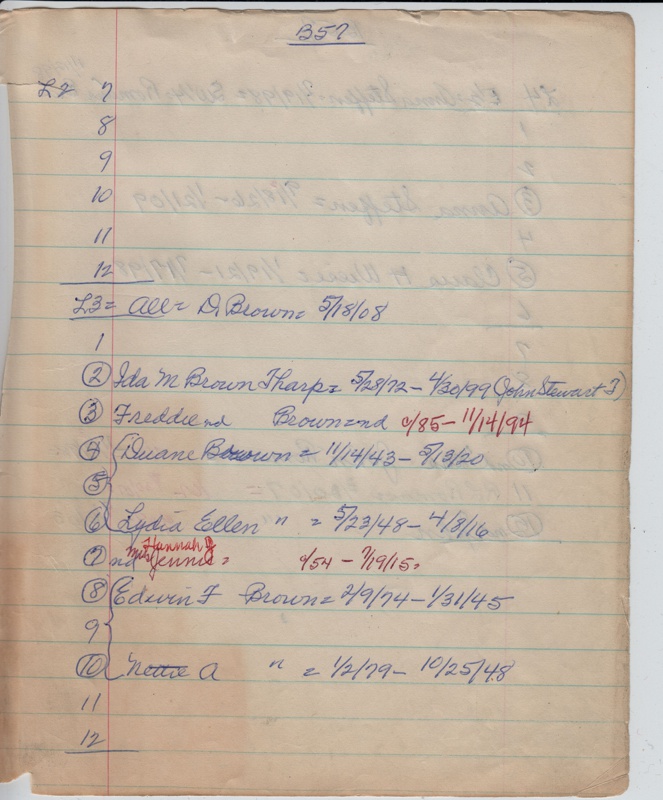 B57
L2 7
8
9
10
11
12
L3 = All = D. Brown = 5/18/08
1
2 Ida M Brown Tharp = 5/28/72 - 4/30/99 (John Stewart T)
3 Freddie nd Brown = nd c/85 - 11/14/94
4 Duane Brown = 11/14/43 - 5/13/20
5
6 Lydia Ellen " = 5/23/48 - 4/8/16
Hannah J
7 nd Mrs Jennie = c/54 - 7/19/15 =
8 Edwin F Brown = 2/9/74 - 1/31/45
9
10 Nettie A " = 1/2/79 - 10/25/48
11
12